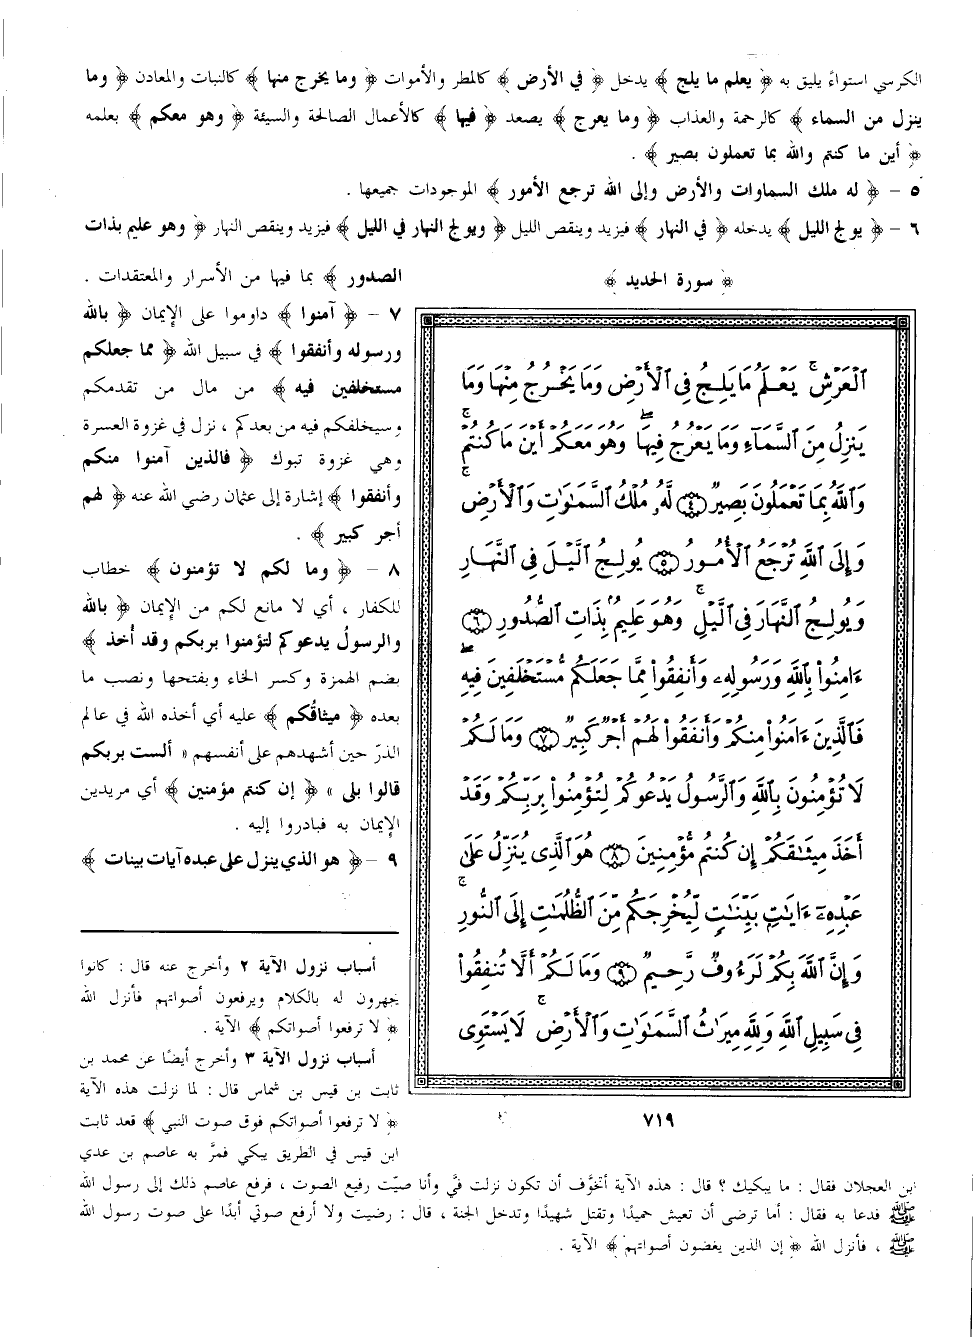 الكرسي استواءً يليق به ﴿ يعلم ما يلج ﴾ يدخل ﴿ في الأرض ﴾ كالمطر والأموات ﴿ وما يخرج منها ﴾ كالنبات والمعادن ﴿ وما
ينزل من السماء ﴾ كالرحمة والعذاب ﴿ وما يعرج ﴾ يصعد ﴿ فيها ﴾ كالأعمال الصالحة والسيئة ﴿ وهو معكم ﴾ بعلمه
﴿ أين ما كنتم والله بما تعملون بصير ﴾ .
٥ – ﴿ له ملك السماوات والأرض وإلى الله ترجع الأمور ﴾ الموجودات جميعها .
٦ – ﴿ يولج الليل ﴾ يدخله ﴿ في النهار ﴾ فيزيد وينقص الليل ﴿ ويولج النهار في الليل ﴾ فيزيد وينقص النهار ﴿ وهو عليم بذات
الصدور ﴾ بما فيها من الأسرار والمعتقدات .
٧ – ﴿ آمنوا ﴾ داوموا على الإيمان ﴿ بالله
ورسوله وأنفقوا ﴾ في سبيل الله ﴿ مما جعلكم
مستخلفين فيه ﴾ من مال من تقدمكم
وسيخلفكم فيه من بعدكم ، نزل في غزوة العسرة
وهي غزوة تبوك ﴿ فالذين آمنوا منكم
وأنفقوا ﴾ إشارة إلى عثمان رضي الله عنه ﴿ لهم
أجر كبير ﴾ .
٨ – ﴿ وما لكم لا تؤمنون ﴾ خطاب
للكفار ، أي لا مانع لكم من الإيمان ﴿ بالله
والرسولُ يدعوكم لتؤمنوا بربكم وقد أُخذ ﴾
بضم الهمزة وكسر الخاء وبفتحها ونصب ما
بعده ﴿ ميثاقُكم ﴾ عليه أي أخذه الله في عالم
الذرّ حين أشهدهم على أنفسهم « ألست بربكم
قالوا بلى » ﴿ إن كنتم مؤمنين ﴾ أي مريدين
الإيمان به فبادروا إليه .
٩ – ﴿ هو الذي ينزل على عبده آيات بينات ﴾
﴿ سورة الحديد ﴾
ٱلْعَرْشِ ۚ يَعْلَمُ مَا يَلِجُ فِى ٱلْأَرْضِ وَمَا يَخْرُجُ مِنْهَا وَمَا
يَنزِلُ مِنَ ٱلسَّمَآءِ وَمَا يَعْرُجُ فِيهَا ۖ وَهُوَ مَعَكُمْ أَيْنَ مَا كُنتُمْ ۚ
وَٱللَّهُ بِمَا تَعْمَلُونَ بَصِيرٌ ﴿٤﴾ لَّهُۥ مُلْكُ ٱلسَّمَٰوَٰتِ وَٱلْأَرْضِ ۚ
وَإِلَى ٱللَّهِ تُرْجَعُ ٱلْأُمُورُ ﴿٥﴾ يُولِجُ ٱلَّيْلَ فِى ٱلنَّهَارِ
وَيُولِجُ ٱلنَّهَارَ فِى ٱلَّيْلِ ۚ وَهُوَ عَلِيمٌۢ بِذَاتِ ٱلصُّدُورِ ﴿٦﴾
ءَامِنُوا۟ بِٱللَّهِ وَرَسُولِهِۦ وَأَنفِقُوا۟ مِمَّا جَعَلَكُم مُّسْتَخْلَفِينَ فِيهِ ۖ
فَٱلَّذِينَ ءَامَنُوا۟ مِنكُمْ وَأَنفَقُوا۟ لَهُمْ أَجْرٌ كَبِيرٌ ﴿٧﴾ وَمَا لَكُمْ
لَا تُؤْمِنُونَ بِٱللَّهِ وَٱلرَّسُولُ يَدْعُوكُمْ لِتُؤْمِنُوا۟ بِرَبِّكُمْ وَقَدْ
أَخَذَ مِيثَٰقَكُمْ إِن كُنتُم مُّؤْمِنِينَ ﴿٨﴾ هُوَ ٱلَّذِى يُنَزِّلُ عَلَىٰ
عَبْدِهِۦٓ ءَايَٰتٍۭ بَيِّنَٰتٍ لِّيُخْرِجَكُم مِّنَ ٱلظُّلُمَٰتِ إِلَى ٱلنُّورِ ۚ
وَإِنَّ ٱللَّهَ بِكُمْ لَرَءُوفٌ رَّحِيمٌ ﴿٩﴾ وَمَا لَكُمْ أَلَّا تُنفِقُوا۟
فِى سَبِيلِ ٱللَّهِ وَلِلَّهِ مِيرَٰثُ ٱلسَّمَٰوَٰتِ وَٱلْأَرْضِ ۚ لَا يَسْتَوِى
٧١٩
أسباب نزول الآية ٢ وأخرج عنه قال : كانوا
يجهرون له بالكلام ويرفعون أصواتهم فأنزل الله
﴿ لا ترفعوا أصواتكم ﴾ الآية .
أسباب نزول الآية ٣ وأخرج أيضًا عن محمد بن
ثابت بن قيس بن شماس قال : لما نزلت هذه الآية
﴿ لا ترفعوا أصواتكم فوق صوت النبي ﴾ قعد ثابت
ابن قيس في الطريق يبكي فمرَّ به عاصم بن عدي
ابن العجلان فقال : ما يبكيك ؟ قال : هذه الآية أتخوَّف أن تكون نزلت فيَّ وأنا صيّت رفيع الصوت ، فرفع عاصم ذلك إلى رسول الله
ﷺ فدعا به فقال : أما ترضى أن تعيش حميدًا وتقتل شهيدًا وتدخل الجنة ، قال : رضيت ولا أرفع صوتي أبدًا على صوت رسول الله
ﷺ ، فأنزل الله ﴿ إن الذين يغضون أصواتهم ﴾ الآية .